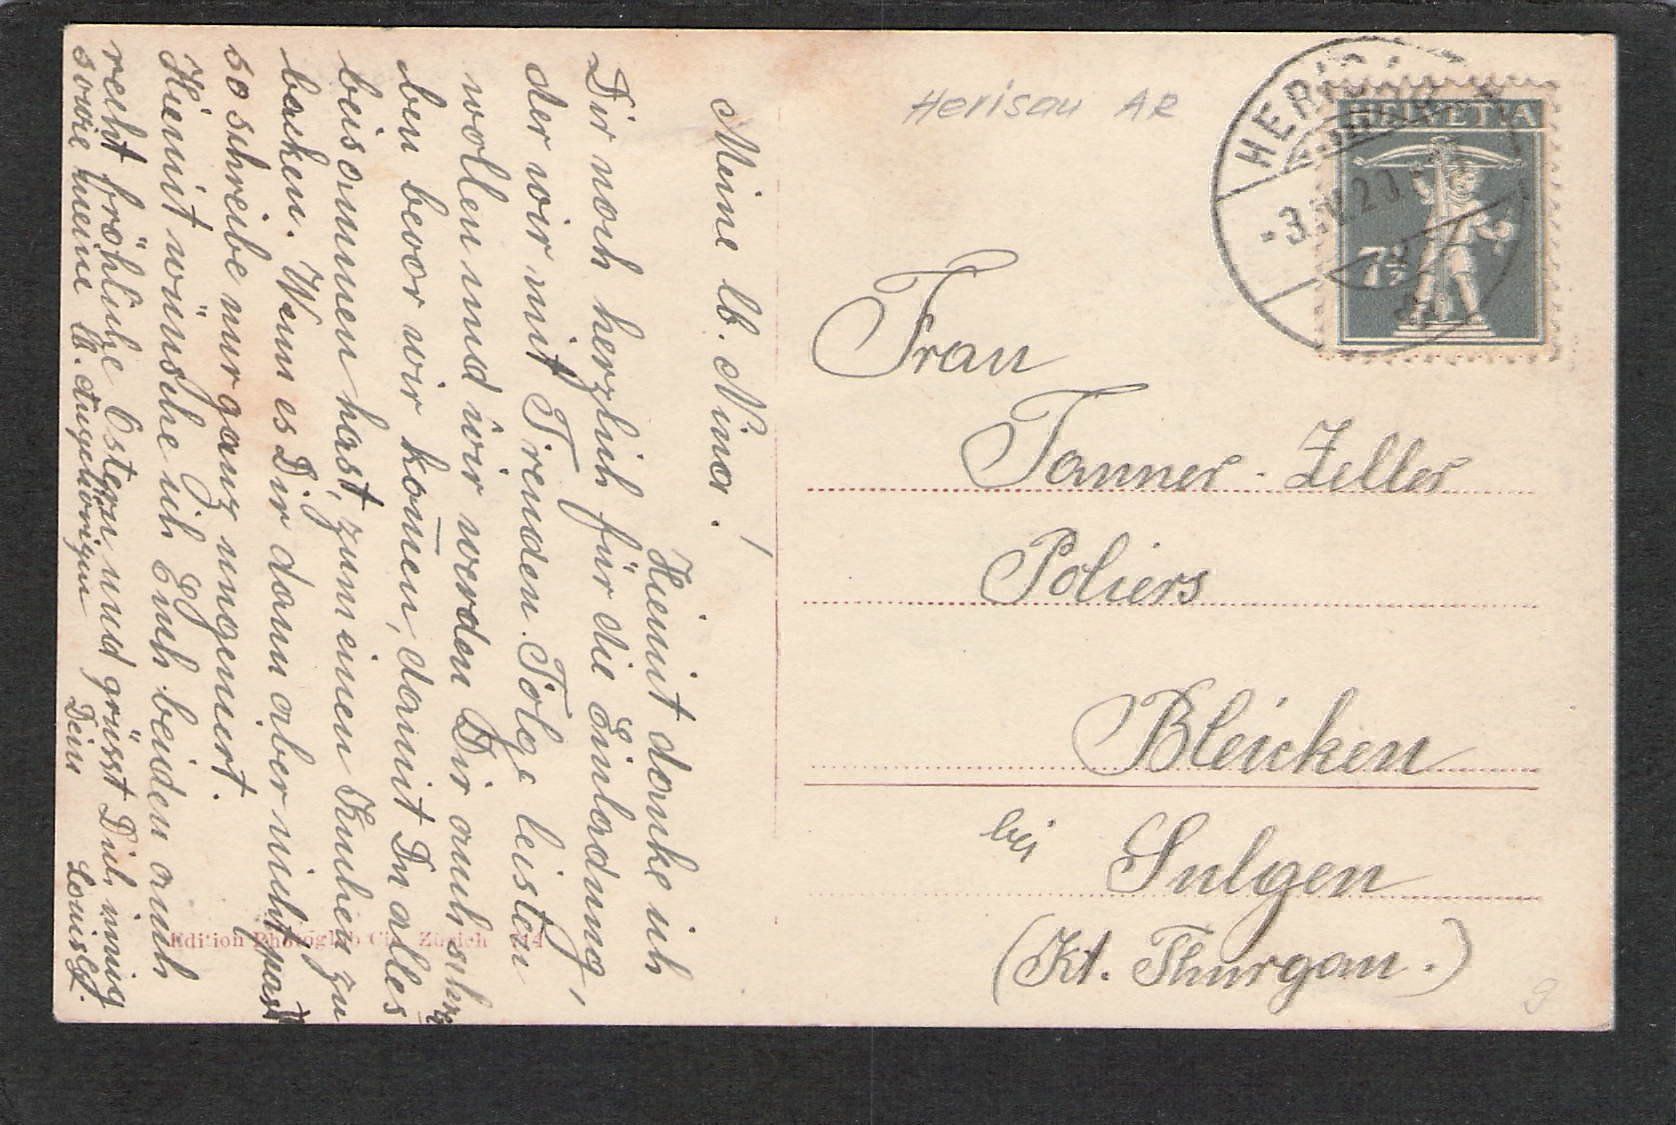 Meine lb. Nina!
Hiemit danke ich
Dir noch herzlich für die Einladung,
der wir mit Freuden Folge leisten
wollen und wir werden Dir auch schrei-
ben bevor wir kom̄en, damit Du alles
beisammen hast, zum einen Kuchen zu
backen. Wenn es Dir dann aber nicht passt
so schreibe nur ganz ungeniert.
Hiemit wünsche ich Euch beiden auch
recht fröhliche Ostern und grüsst Dich innig
sowie meine lb. Angehörigen Dein Louisly.
Edition Photoglob Co. Zürich
Herisau AR
HERISAU
-3.IV.20.
HELVETIA
7½
Frau
Tanner-Zeller
Poliers
Bleicken
bei Sulgen
(Kt. Thurgau.)
9